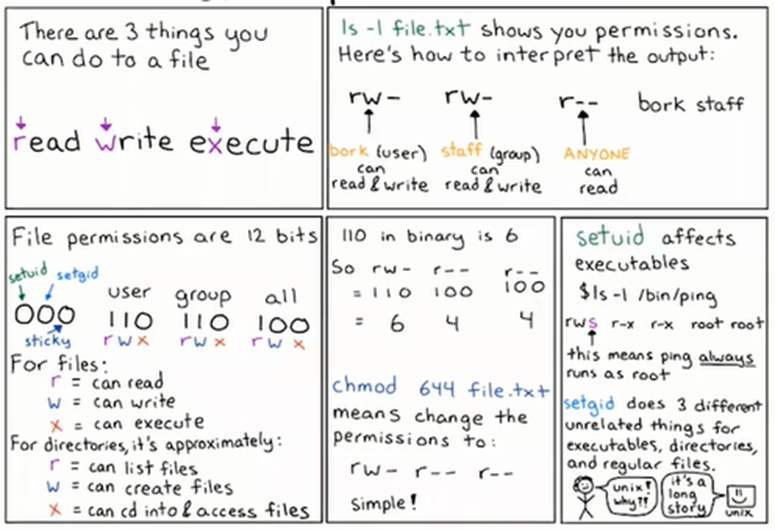 There are 3 things you
can do to a file
read write execute
ls -l file.txt shows you permissions.
Here's how to interpret the output:
rw- rw- r-- bork staff
bork (user) staff (group) ANYONE
can can can
read & write read & write read
File permissions are 12 bits
setuid setgid
user group all
000 110 110 100
sticky rwx rwx rwx
For files:
r = can read
w = can write
x = can execute
For directories, it's approximately:
r = can list files
w = can create files
x = can cd into & access files
110 in binary is 6
So rw- r-- r--
= 110 100 100
= 6 4 4
chmod 644 file.txt
means change the
permissions to:
rw- r-- r--
simple!
setuid affects
executables
$ls -l /bin/ping
rws r-x r-x root root
this means ping always
runs as root
setgid does 3 different
unrelated things for
executables, directories,
and regular files.
unix!
why?!
it's a
long
story
unix